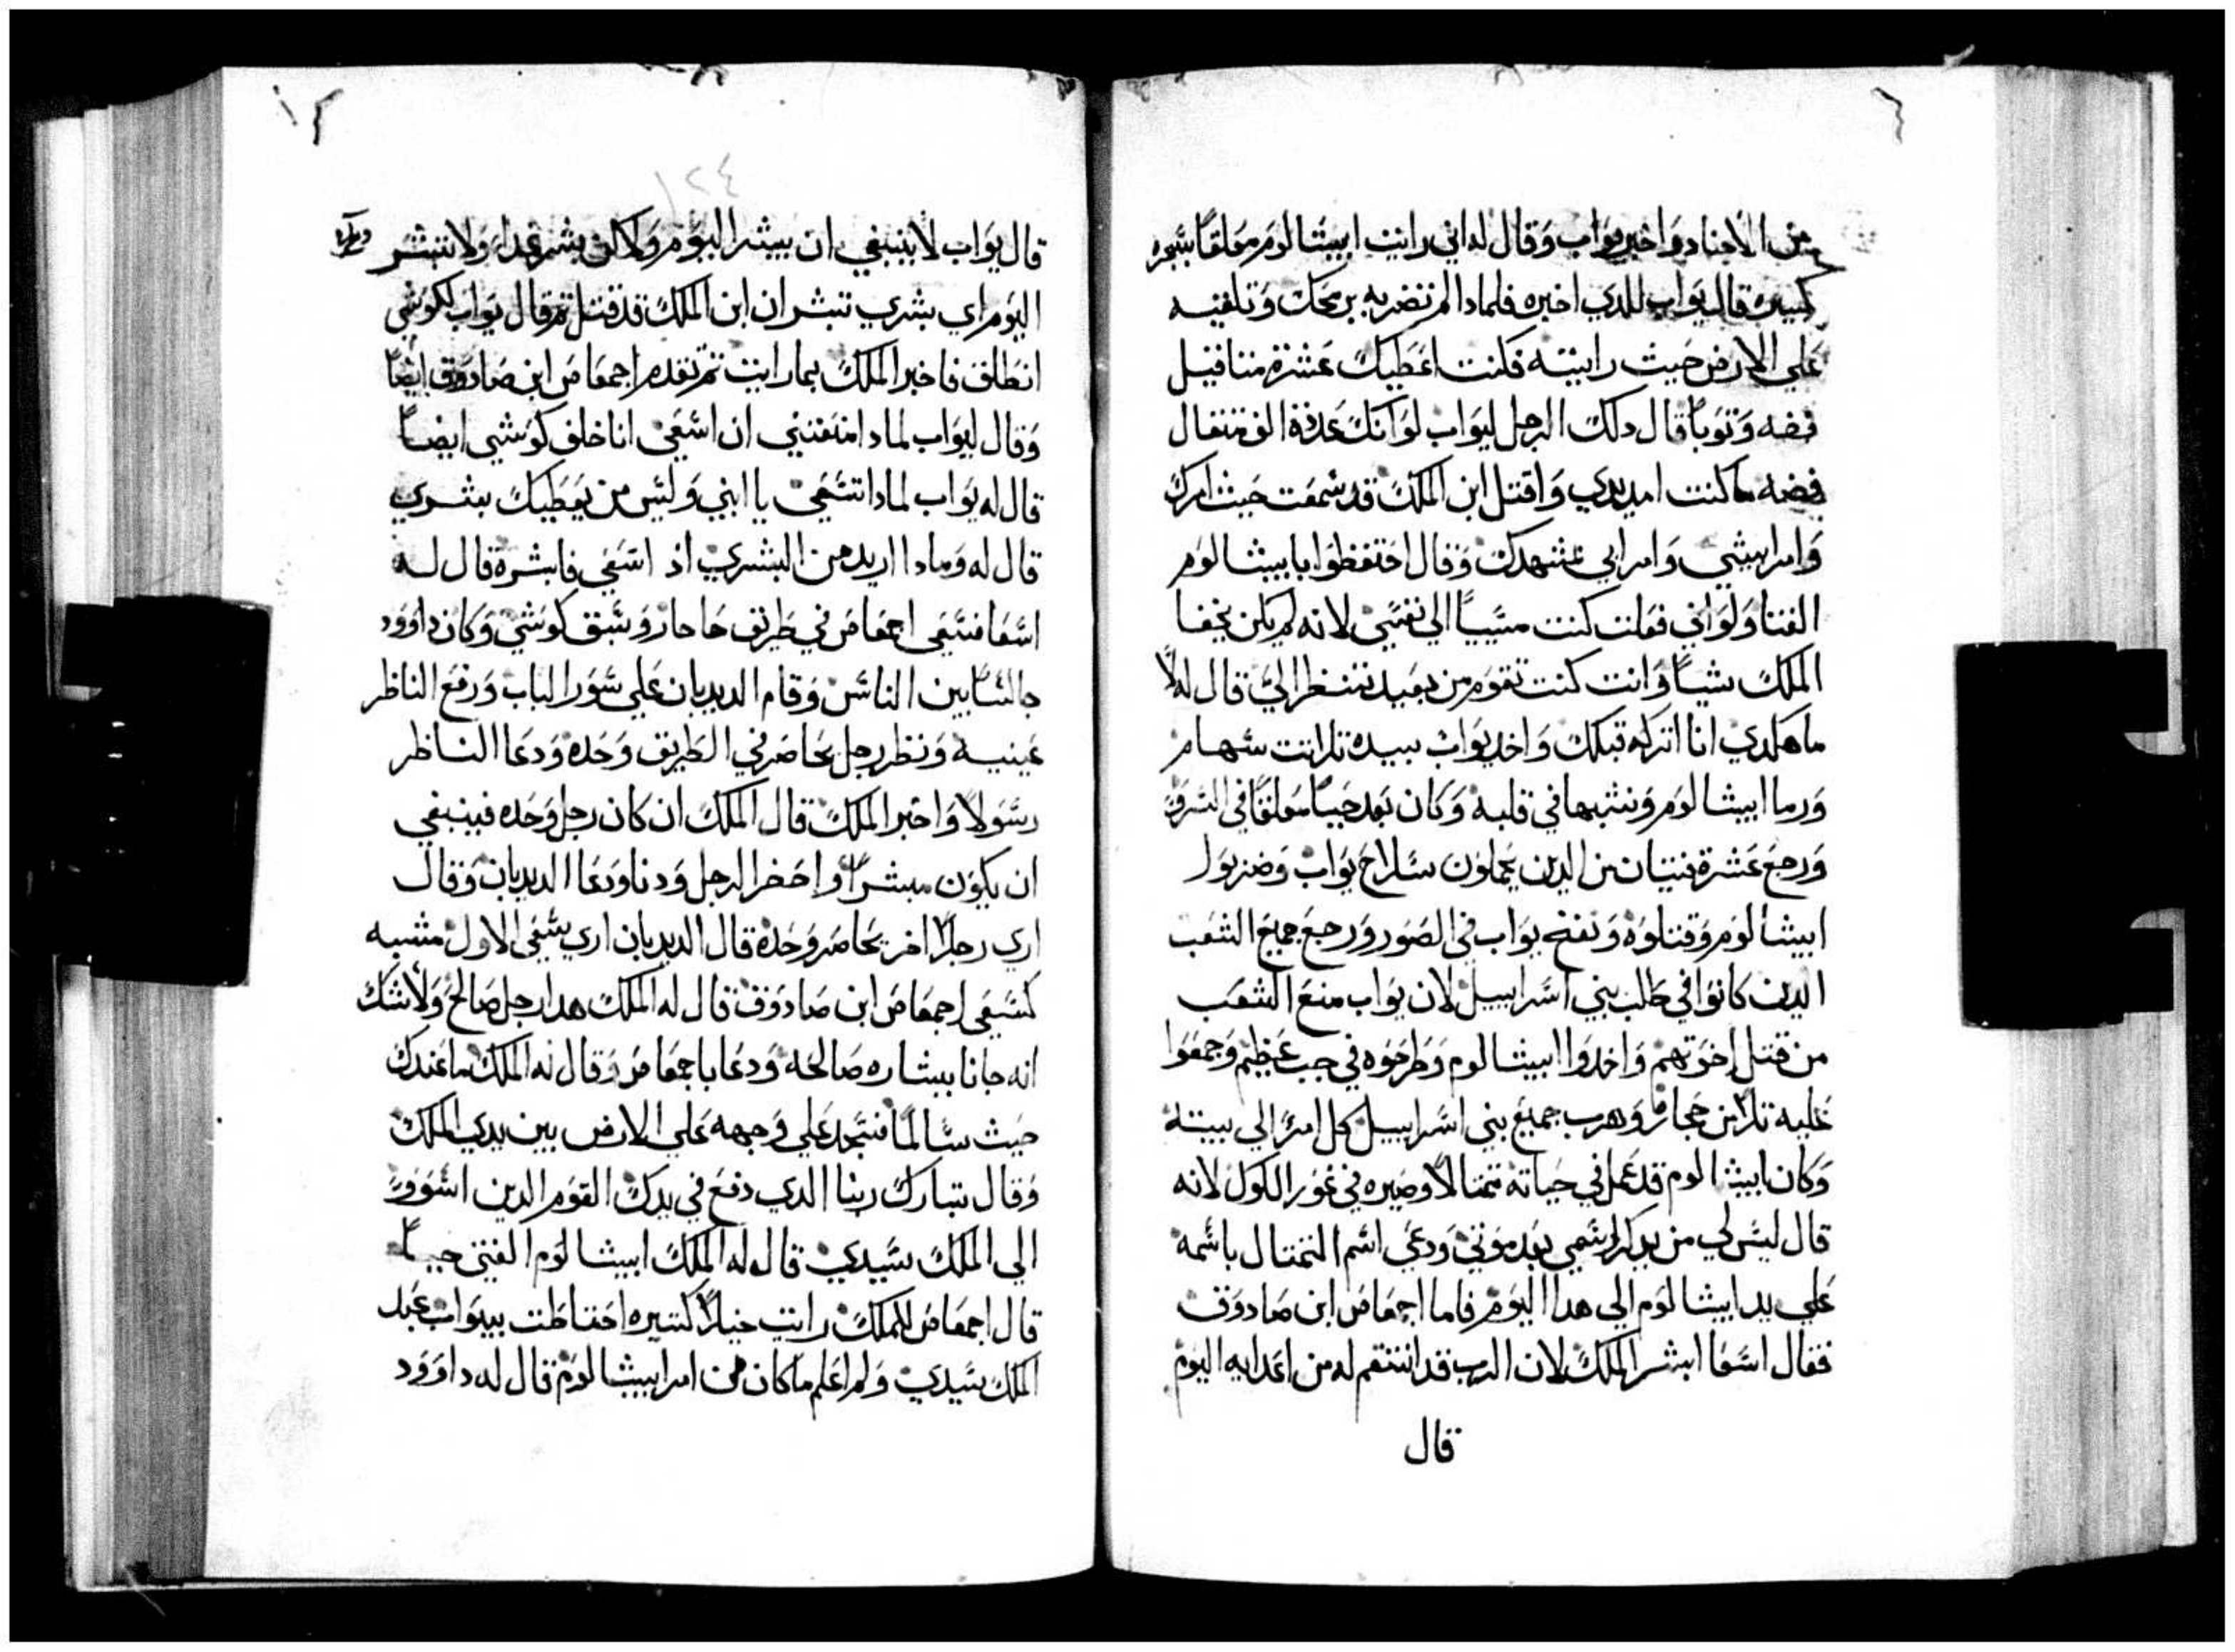 من الاجناد واخبر يواب وقال له اني رايت ابيشالوم معلقا بشجره
كبيره قال يواب للدي اخبره فلمادا لم تضربه برمحك وتلقيه
علي الارض حيث رايته فكنت اعطيك عشرة مثاقيل
فضه وثوبا قال دلك الرجل ليواب لو انك عددة الف مثقال
فضه ما كنت امد يدي واقتل ابن الملك قد سمعت حيث امرك
وامر ابيشي وامر ابي عشهدك وقال احتفظوا بابيشالوم
الفتا ولو اني فعلت كنت مسيا الي نفسي لانه لم يكن يخفا
الملك شيا وانت كنت تقوم من بعيد تنظر الي قال له لا
ما هكدي انا اتركه قبلك واخد يواب بيده تلاتت سهام
ورما ابيشالوم ونشبها في قلبه وكان بعد حيا معلقا في الشرف
ورجع عشرة فتيان من الدين يحملون سلاح يواب وضربوا
ابيشالوم وقتلوه ونفخ يواب في الصور ورجع جميع الشعب
الدين كانوا في طلب بني اسراييل لان يواب منع الشعب
من قتل اخوتهم واخدوا ابيشالوم وطرحوه في جب عظيم وجمعوا
عليه تلا من حجاره وهرب جميع بني اسراييل كل امر الي بيته
وكان ابيشالوم قد عمل في حياته تمتالا وصيره في غور الكول لانه
قال ليس لي من يدكر اسمي بعد موتي ودعي اسم التمتال باسمه
علي يد ابيشالوم الي هدا اليوم فاما اجمعاص ابن صادوق
فقال اسعا ابشر الملك لان الرب قد انتقم له من اعدايه اليوم
قال
١٢٤
قال يواب لا ينبغي ان يبشر اليوم ولاكن بشر غدا ولا تبشر
اليوم اي بشري تبشر ان ابن الملك قد قتل تم قال يواب لكوشي
انطلق فاخبر الملك بما رايت تم تقدم اجمعاص ابن صادوق ايضا
وقال ليواب لمادا منعتني ان اسعي انا خلف كوشي ايضا
قال له يواب لمادا تسعي يا ابني وليس من يعطيك بشري
قال له ومادا اريد من البشري اد اسعي فابشره قال له
اسعا فسعي اجمعاص في طريق حاحار وسبق كوشي وكان داوود
جالسا بين الناس وقام الديدبان علي سور الباب ورفع الناظر
عينيه ونظر رجل يحاضر في الطريق وحده ودعا الناظر
رسولا واخبر الملك قال الملك ان كان رجل وحده فينبغي
ان يكون مبشرا واحضر الرجل ودنا ودعا الديدبان وقال
اري رجلا اخر يحاضر وحده قال الديدبان اري سعي الاول مشبه
كسعي اجمعاص ابن صادوق قال له الملك هدا رجل صالح ولا شك
انه جانا ببشاره صالحه ودعا باجمعاص وقال له الملك ما عندك
حيث سالما فسجد علي وجهه علي الارض بين يدي الملك
وقال تبارك ربنا الدي دفع في يدك القوم الدين اسوور
الي الملك سيدي قال له الملك ابيشالوم الفتي حيا
قال اجمعاص للملك رايت خيلا كتيره احتاطت بيواب عبد
الملك سيدي ولم اعلم ما كان من امر ابيشالوم قال له داوود